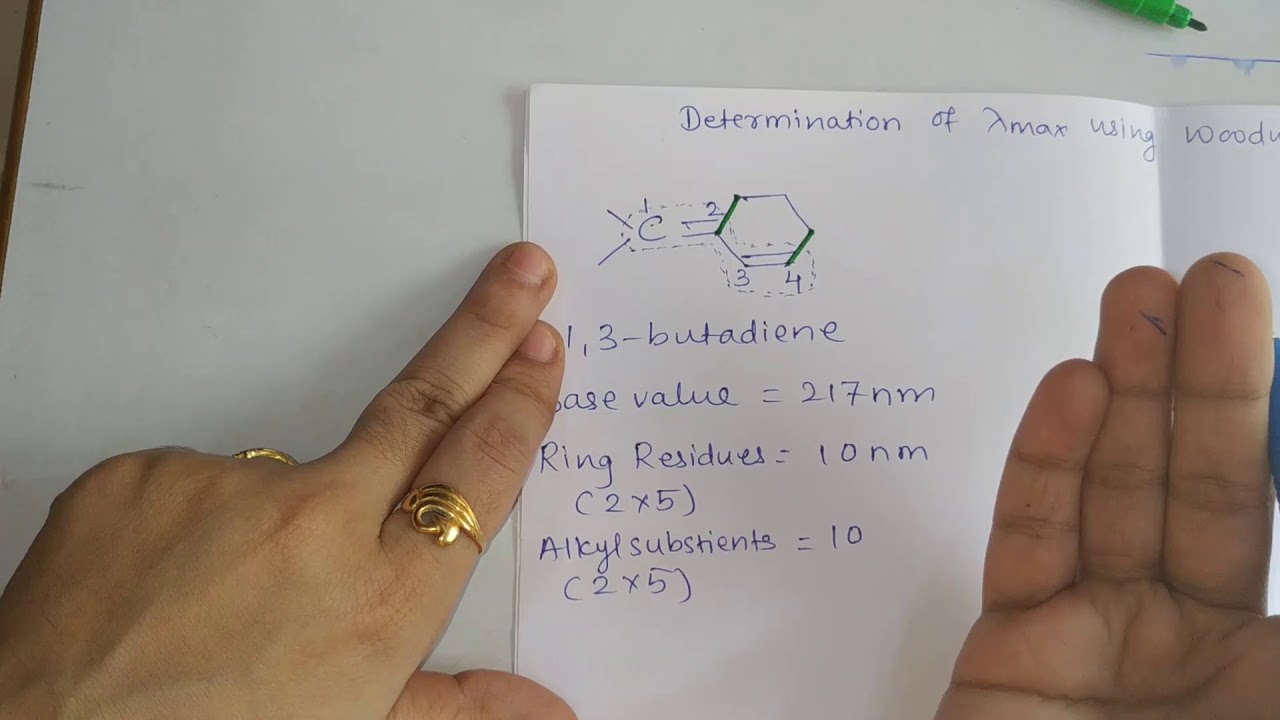 Determination of λmax using
1
C
2
3
4
1,3-butadiene
base value = 217nm
Ring Residues = 10nm
(2×5)
Alkyl substients = 10
(2×5)